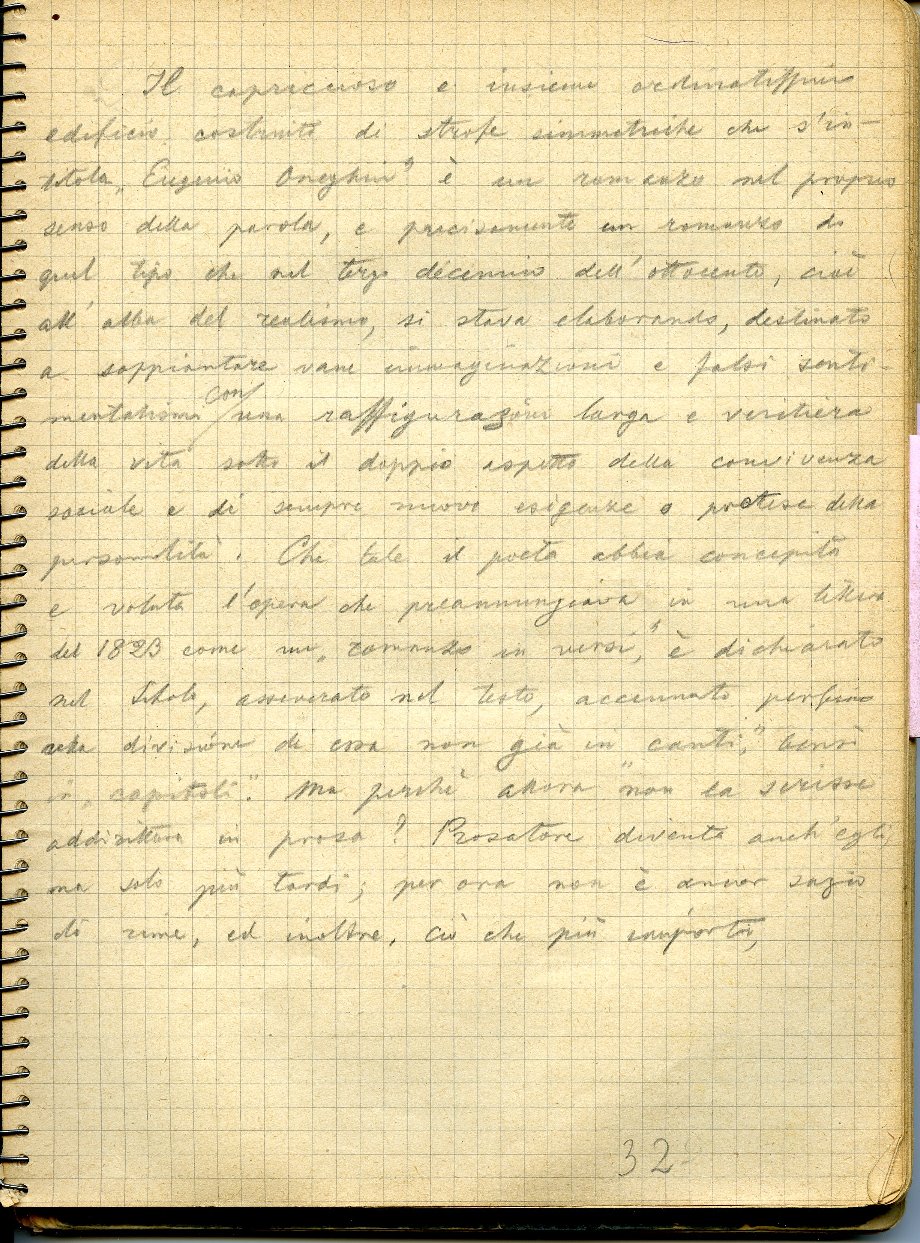 Il capriccioso e insieme ordinatissimo
edificio costruito di strofe simmetriche che s'in-
titola „Eugenio Oneghin" è un romanzo nel proprio
senso della parola, e precisamente un romanzo di
quel tipo che nel terzo decennio dell'ottocento, cioè
all'alba del realismo, si stava elaborando, destinato
a soppiantare vane immaginazioni e falsi senti-
mentalismi con una raffigurazione larga e veritiera
della vita sotto il doppio aspetto della convivenza
sociale e di sempre nuove esigenze o pretese della
personalità. Che tale il poeta abbia concepita
e voluta l'opera che preannunziava in una lettera
del 1823 come un „romanzo in versi", è dichiarato
nel titolo, asseverato nel testo, accennato perfino
nella divisione di essa non già in canti," bensì
in „capitoli". Ma perchè allora non la scrisse
addirittura in prosa? Prosatore diventa anch'egli,
ma solo più tardi; per ora non è ancor sazio
di rime, ed inoltre, ciò che più importa,
32